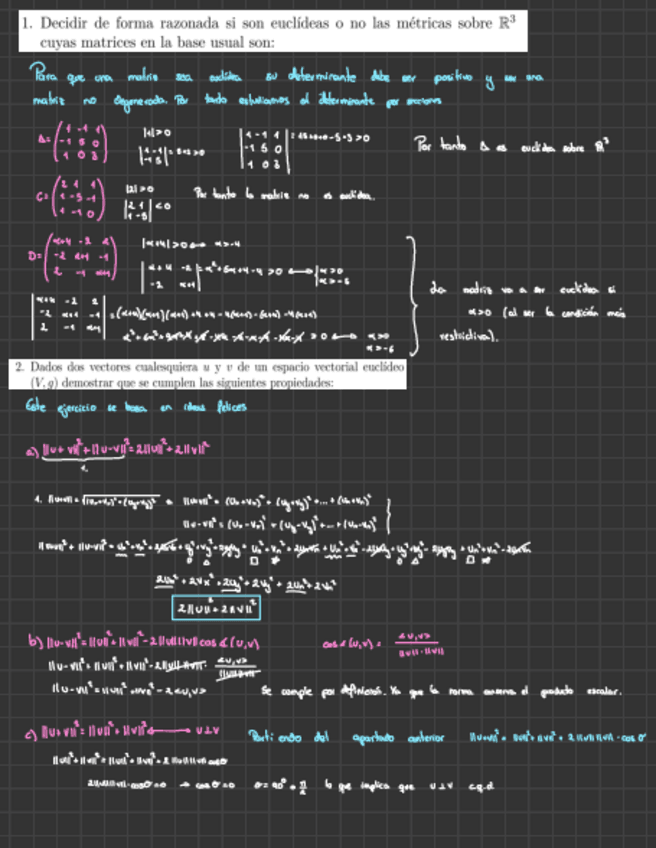 1. Decidir de forma razonada si son euclídeas o no las métricas sobre ℝ³
cuyas matrices en la base usual son:
Para que una matriz sea euclídea su determinante debe ser positivo y ser una
matriz no degenerada. Por tanto estudiamos el determinante por
A= (1 -1 1 / -1 5 0 / 1 0 3) |1|>0 |1 -1 / -1 5| |1 -1 1 / -1 5 0 / 1 0 3| Por tanto A es euclídea sobre ℝ³
C= (2 1 1 / 1 -5 -1 / 1 -1 0) |2|>0 |2 1 / 1 -5| <0 Por tanto la matriz no es euclídea.
D= (α+4 -2 2 / -2 α+1 -1 / 2 -1 α+1) |α+4|>0 ⟷ α>-4
|α+4 -2 / -2 α+1| = α²+5α+4-4 >0 ⟷ α>0 α>-5
la matriz va a ser euclídea si
α>0 (al ser la condición más
restrictiva).
|α+4 -2 2 / -2 α+1 -1 / 2 -1 α+1|
2. Dados dos vectores cualesquiera u y v de un espacio vectorial euclídeo
(V, g) demostrar que se cumplen las siguientes propiedades:
Este ejercicio se basa en ideas felices
a) ||u+v||²+||u-v||²=2||u||²+2||v||²
1.
||u-v||² = (Ux-Vx)² + (Uy-Vy)² + ... + (Un-Vn)²
2Ux² + 2Vx² + 2Uy² + 2Vy² + 2Un² + 2Vn²
2||u||²+2||v||²
b) ||u-v||²=||u||²+||v||²-2||u||||v||cos∡(u,v) cos∡(u,v) = <u,v> / ||u||·||v||
||u-v||²=||u||²+||v||²-2||u||·||v||· <u,v> / ||u||·||v||
||u-v||²=||u||²+||v||²-2<u,v> Se cumple por definición. Ya que la norma conserva el producto escalar.
c) ||u+v||²=||u||²+||v||² ⟷ u⊥v Partiendo del apartado anterior ||u+v||² = ||u||²+||v||²+2||u||||v||·cos σ
||u||²+||v||²=||u||²+||v||²+2||u||||v||cosσ
2||u||||v||·cosσ=0 → cosσ=0 σ=90º=π/2 lo que implica que u⊥v c.q.d